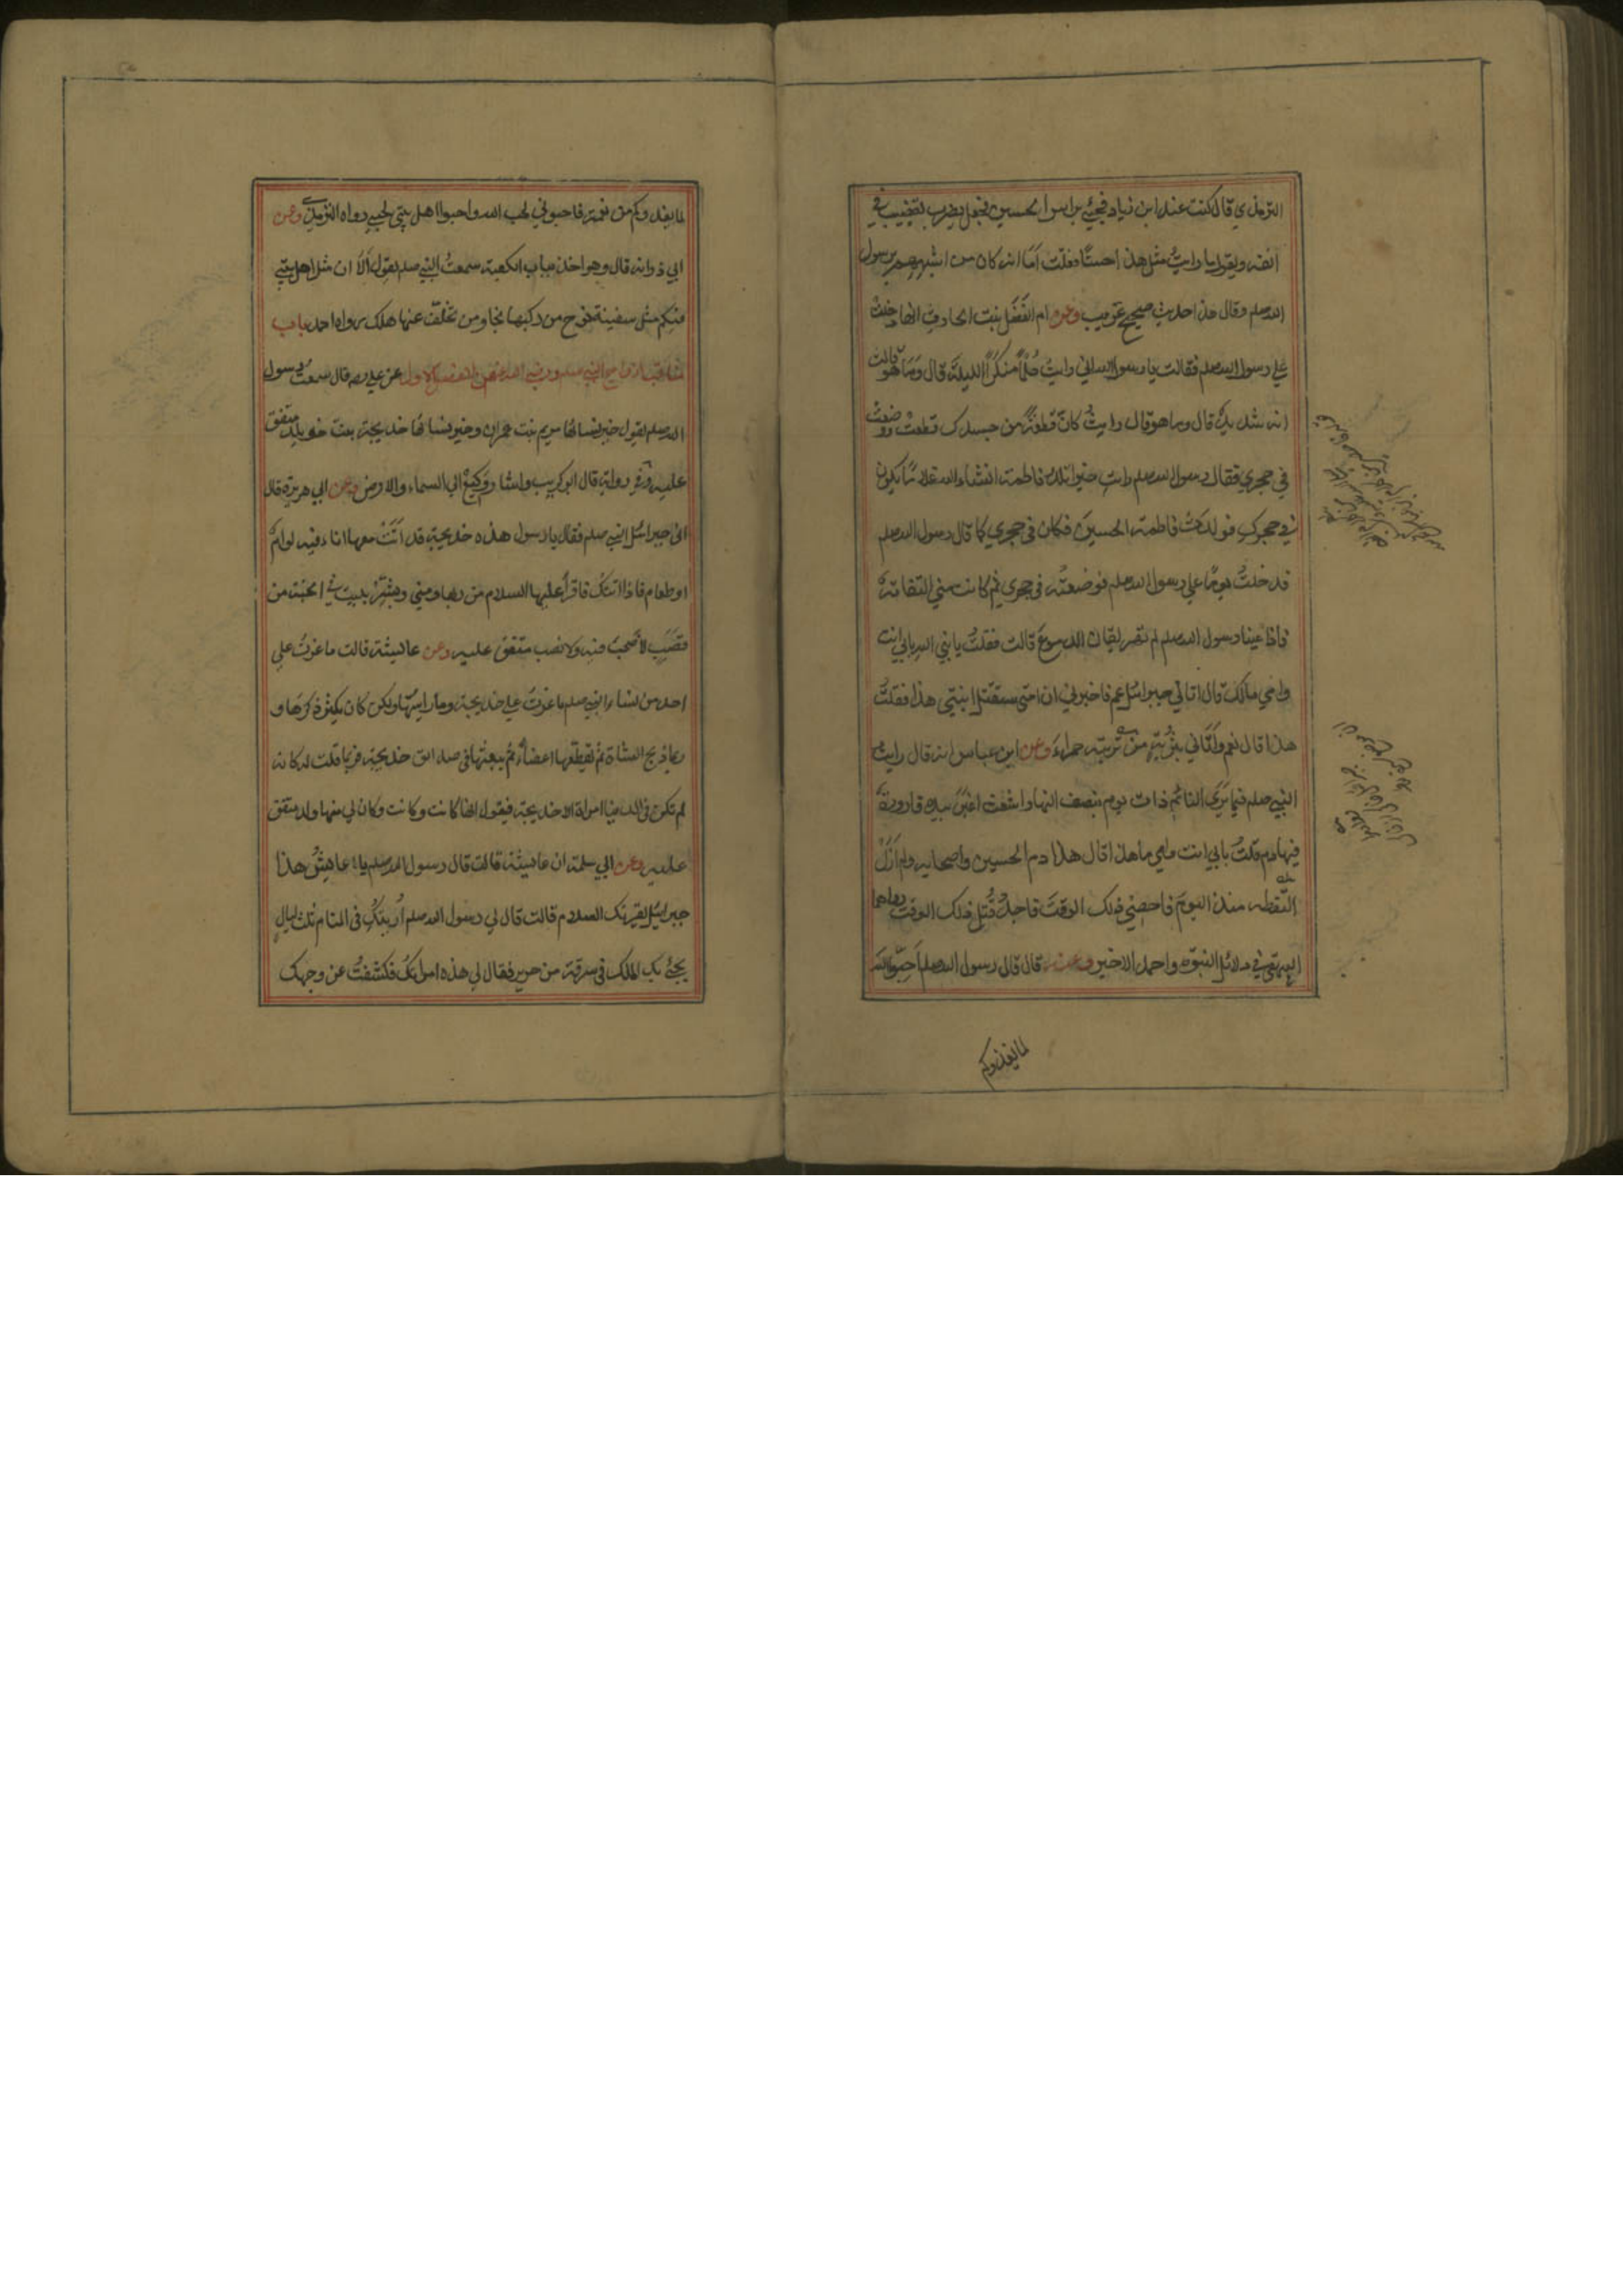 الترمذي قال كنت عند ابن زياد فجيئ براس الحسين فجعل يضرب بقضيب في
انفه ويقول ما رايتُ مثل هذا حسنًا فقلت اَمَا انه كان من اشبههم برسول
الله صلعم وقال هذا حديث صحيح غريب وعن ام الفَضْل بنت الحارث انها دخلتْ
على رسول الله صلعم فقالت يا رسول الله اني رايتُ حُلْمًا منكرًا الليلة قال وَمَا هو قالت
انه شديد قال وما هو قال رايتُ كانّ قطعةً من جسدك قطعتْ ووضعتْ
في حجري فقال رسول الله صلعم رايتِ خيرا تلد فاطمة انشاء الله غلامًا يكون
في حجركِ فولدَتْ فاطمة الحسينَ فكان في حجري كما قال رسول الله صلعم
فدخلتُ يومًا على رسول الله صلعم فوضعتُه في حجره ثم كانت مني التفاتة
فاذا عينا رسول الله صلعم تهريقان الدموعَ قالت فقلتُ يا نبي الله بابي انت
وامي مالك قال اتاني جبرائيل عم فاخبرني ان امتي ستقتل ابني هذا فقلتُ
هذا قال نعم واَتَاني بتُرْبَةٍ من تربته حمراءَ وعن ابن عباس انه قال رايتُ
النبي صلعم فيما يَرَي النائم ذات يوم بنصف النهار اشعث اغبرَ بيده قارورةٌ
فيها دم قلتُ بابي انت وامي ما هذا قال هذا دم الحسين واصحابه ولم اَزَلْ
التقطه منذ اليومَ فاحصي ذلك الوقتَ فاجدُ قُتِلَ ذلك الوقت رواهما
البيهقي في دلائل النبوّة واحمد الاخير وعنه قال قال رسول الله صلعم اَحِبّوا الله
لما يغذوكم
لما يغذوكم من نعمة فاحبوني لحب الله واحبوا اهل بيتي لحبي رواه الترمذي وعن
ابي ذر انه قال وهو اخذ بباب الكعبة سمعتُ النبي صلعم يقول اَلَا ان مثل اهل بيتي
فيكم مثل سفينة نوح من ركبها نجا ومن تخلّف عنها هلك رواه احمد باب
مناقب ازواج النبي صلعم ورضي الله عنهن الفصل الاول عن علي رضه قال سمعتُ رسول
الله صلعم يقول خير نسائها مريم بنت عمران وخير نسائها خديجة بنت خويلد متفق
عليه وفي رواية قال ابو كريب واشار وَكِيْعٌ الي السماء والارض وعن ابي هريرة قال
اتي جبرائيل النبي صلعم فقال يا رسول هذه خديجة قد اَتَتْ معها اناء فيه ادامٌ
او طعام فاذا اتتكَ فاقرأ عليها السلام من ربها ومني وبشِّرْ ببيت في الجنة من
قَصَبٍ لا صَخَبَ فيه ولا نصب متفق عليه وعن عايشة قالت ما غِرتُ علي
احد من نساء النبي صلعم ما غرتُ علي خديجة وما رايتُها ولكن كان يكثر ذكرَها و
ربما ذبح الشاة ثم يقطعها اعضاءً ثم يبعثها في صدائق خديجة فربما قلت له كانه
لم تكن في الدنيا امراة الا خديجة فيقول انها كانت وكانت وكان لي منها ولد متفق
عليه وعن ابي سلمة ان عايشة قالت قال رسول الله صلعم يا عايشُ هذا
جبرائيل يقرئك السلام قالت قال لي رسول الله صلعم اُرِيتُكِ في المنام ثلث ليالٍ
يجئ بك الملك في سرقة من حرير فقال لي هذه امراتك فكشفتُ عن وجهك